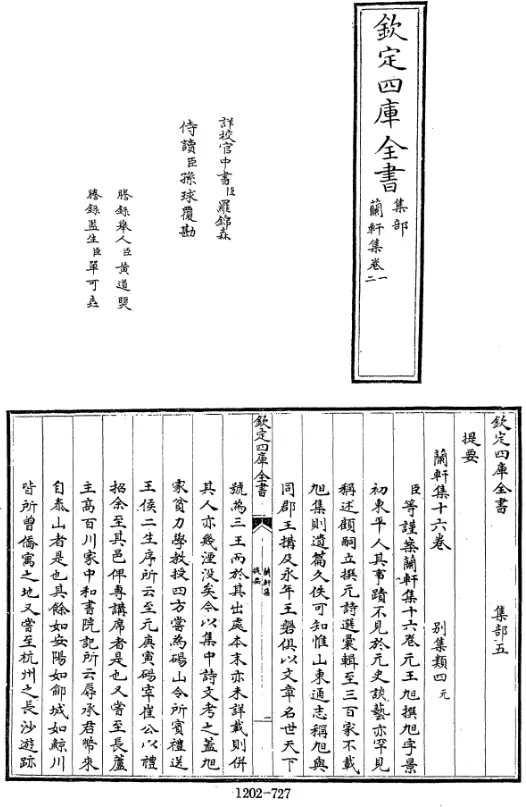 欽定四庫全書
集部
蘭軒集卷一二
詳校官中書臣羅錦森
侍讀臣孫球覆勘
謄録舉人臣黄道煚
謄録監生臣單可垚
欽定四庫全書 集部五
提要
蘭軒集十六卷 别集類四元
臣等謹案蘭軒集十六卷元王旭撰旭字景
初東平人其事蹟不見於元史談藝亦罕見
稱述顧嗣立撰元詩選彙輯至三百家不載
旭集則遺篇久佚可知惟山東通志稱旭與
同郡王搆及永年王磐俱以文章名世天下
欽定四庫全書 蘭軒集 提要 一
號為三王而於其出處本末亦未詳載則併
其人亦幾湮没矣今以集中詩文考之蓋旭
家貧力學教授四方嘗為碭山令所賓禮送
王侯二生序所云至元庚寅碭宰崔公以禮
招余至其邑俾専講席者是也又嘗至長蘆
主高百川家中和書院記所云辱承君幣來
自泰山者是也其餘如安陽如鄃城如鯨川
皆所曾僑寓之地又嘗至杭州之長沙遊跡
1202-727